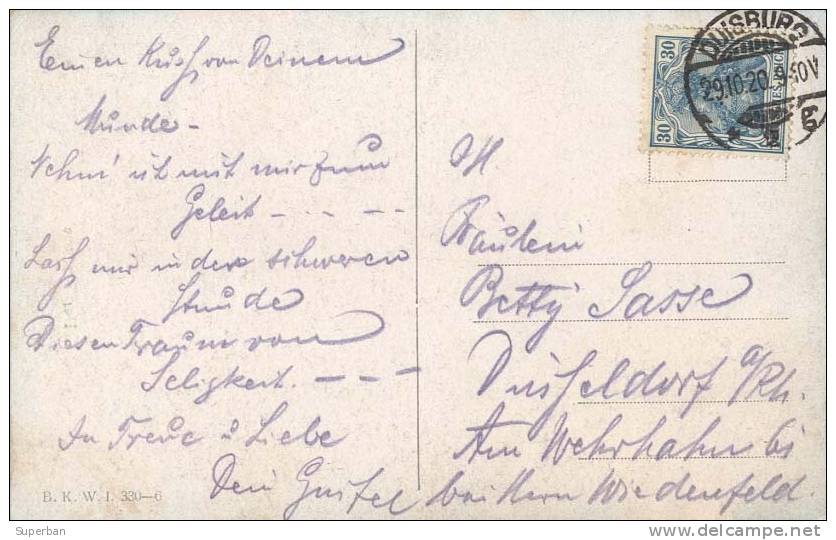 Einen Kuss von Deinem
Munde -
Nehm' ich mit mir zum
Geleit - - - -
Lass mir in der schweren
Stunde
Diesen Traum von
Seligkeit. - - -
In Treue u Liebe
Dein Gustel
B. K. W. I. 330-6
DUISBURG
29.10.20.
30
30
Fräulein
Betty Sasse
Düsseldorf a/Rh.
Am Wehrhahn
bei Herrn Wiedenfeld.
Superban
www.delcampe.net